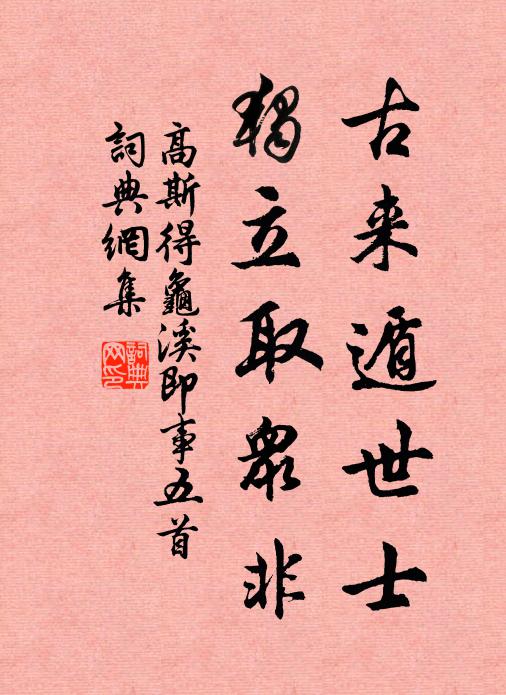 古来遁世士
獨立取衆非
高斯得龜溪即事五首
詞典網集
詞典網印